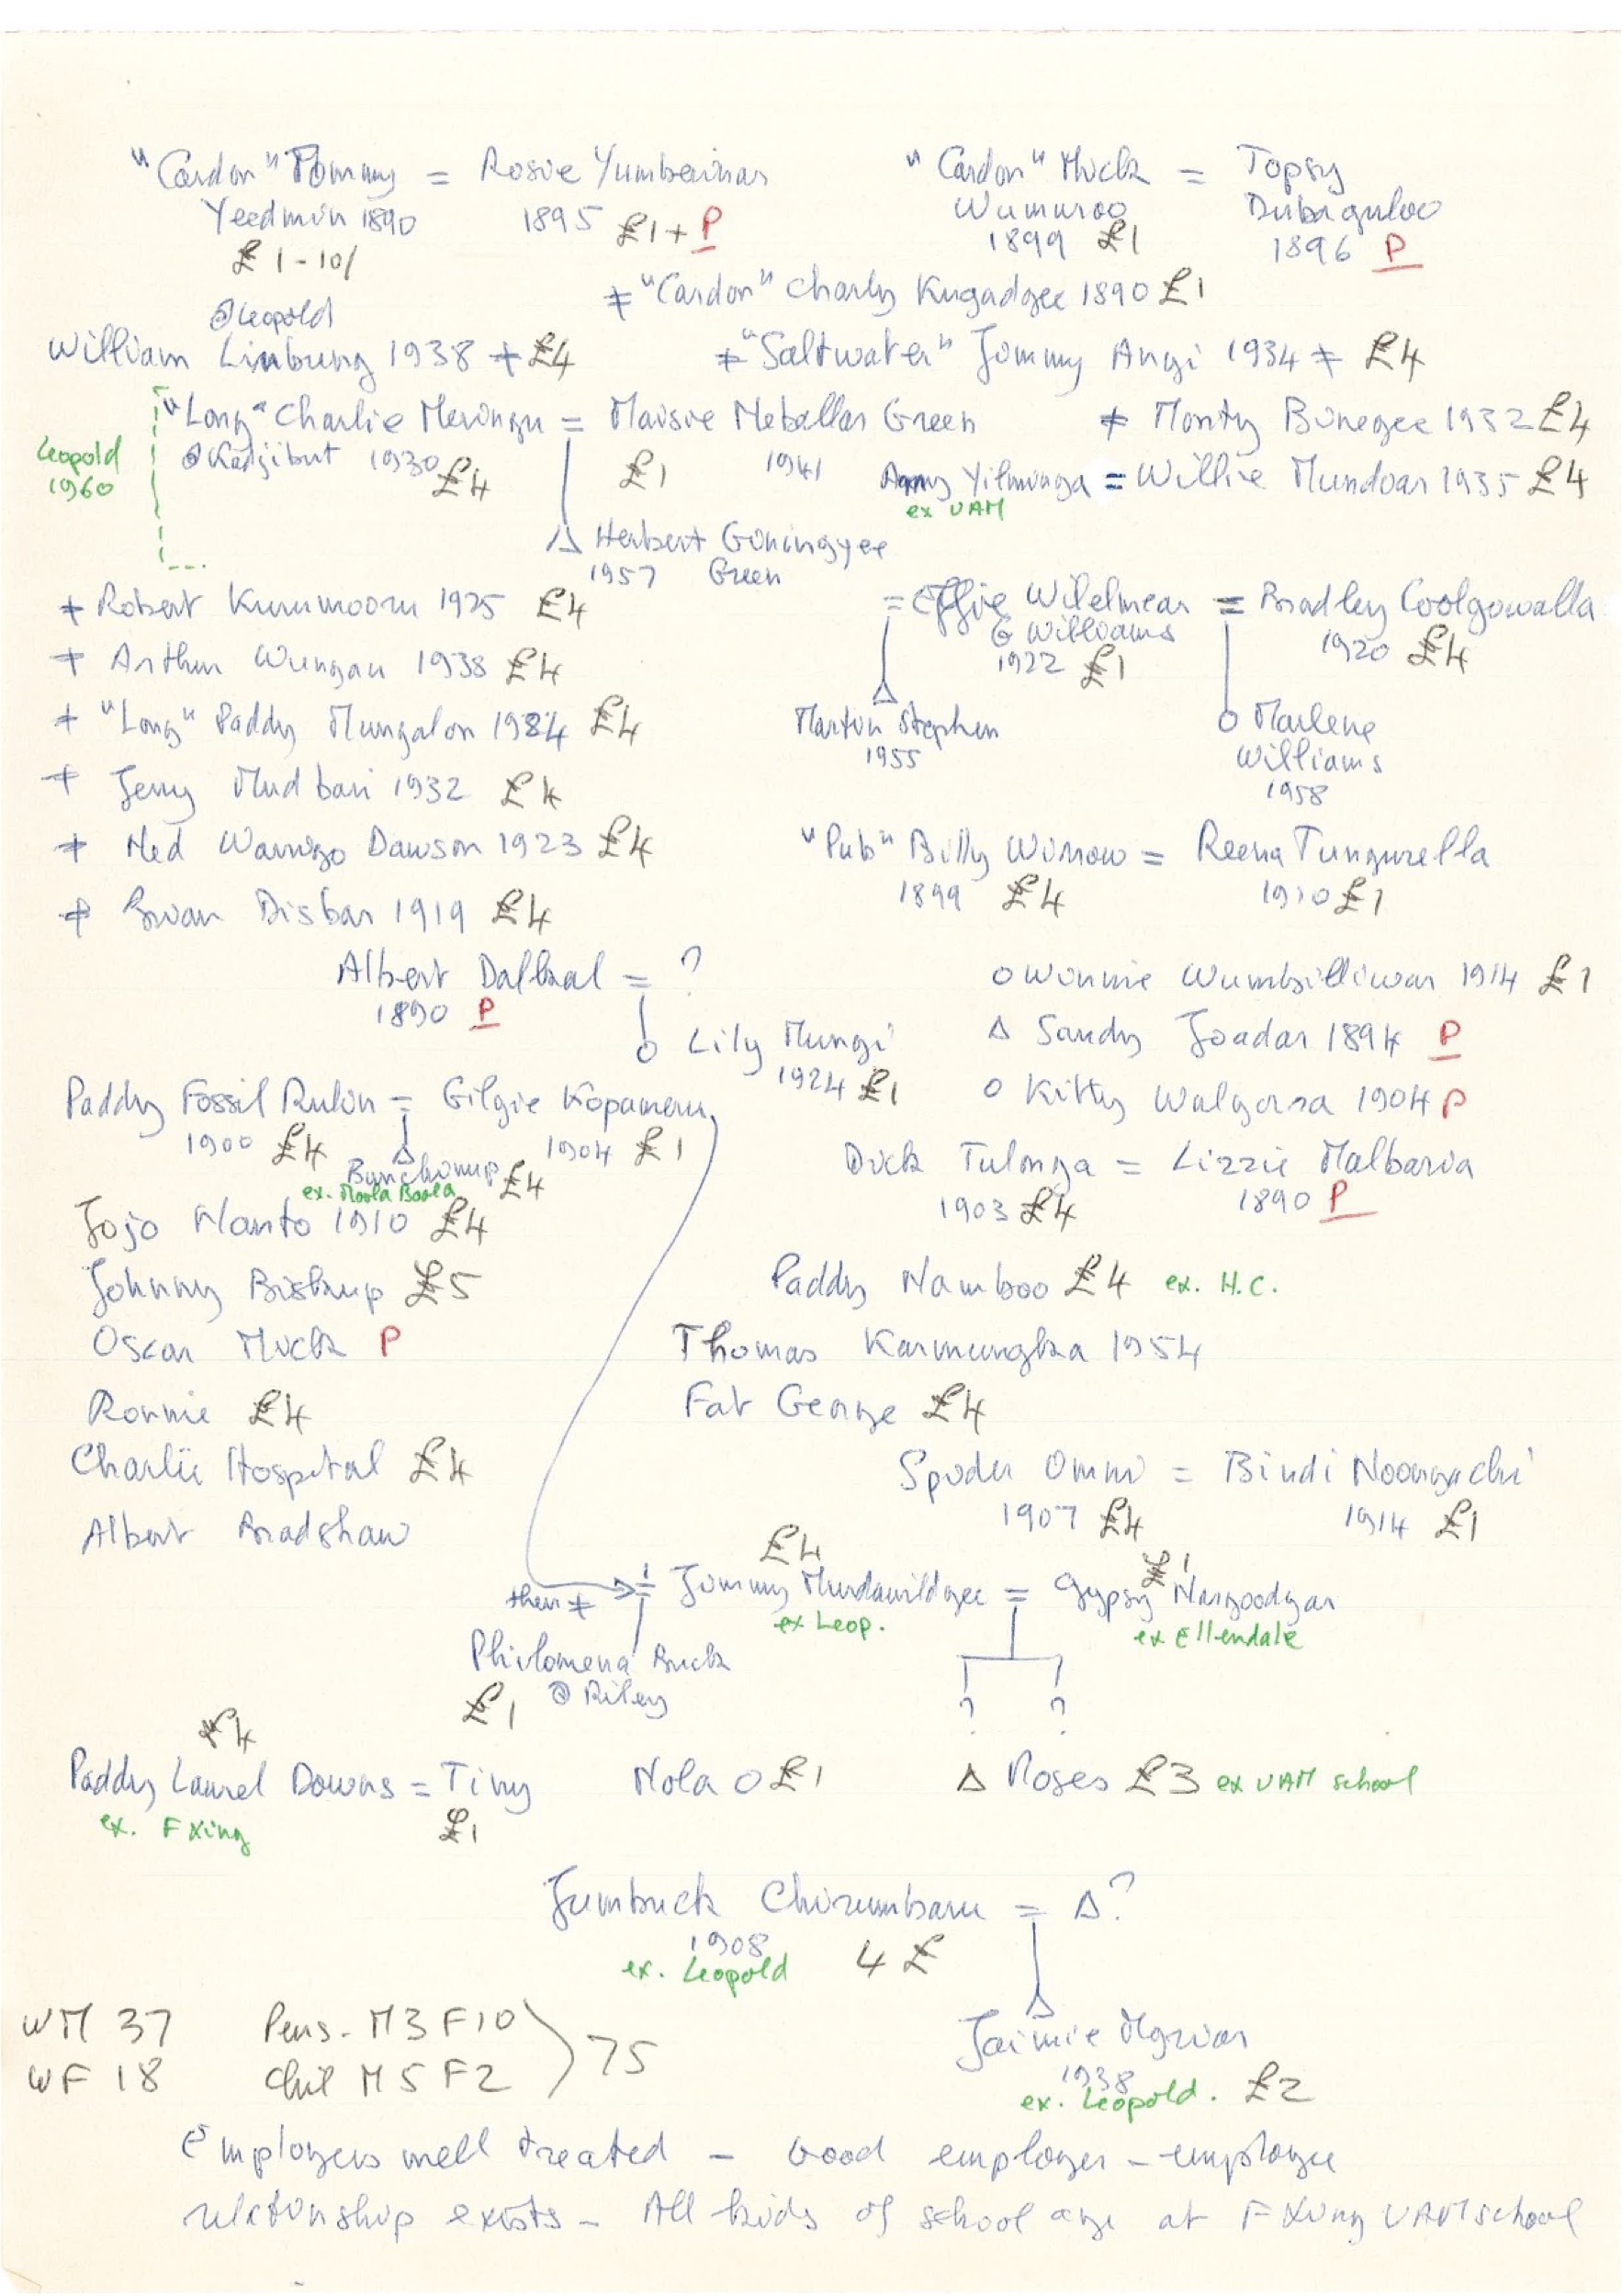 "Cardon" Tommy = Rosie Yumbeinar
Yeedmin 1890 1895 £1+P
£1-10/
"Cardon" Mick = Topsy
Wumuroo Dubaguloo
1899 £1 1896 P
≠ "Cardon" Charly Kugadgee 1890 £1
@ Leopold
William Limbung 1938 ≠ £4
≠ "Saltwater" Jommy Angi 1934 ≠ £4
"Long" Charlie Meringu = Maisie Meballar Green
@ Kadjibut 1930 £4 £1 1941
Leopold
1960
≠ Monty Bunegee 1932 £4
Yilminga = Willie Mundoar 1935 £4
ex UAM
Δ Herbert Goningyee
1957 Green
≠ Robert Kurumooru 1925 £4
≠ Arthur Wungau 1938 £4
≠ "Long" Paddy Mungalon £4
≠ Jerry Mudbari 1932 £4
≠ Ned Warrigo Dawson 1923 £4
≠ Disbar 1919 £4
= Effie Wilelmear = Bradley Coolgowalla
@ Williams 1920 £4
1922 £1
Δ O Marlene
Martin Stephen Williams
1955 1958
"Pub" Billy Winrow = Reena Tungurella
1899 £4 1910 £1
Albert Dalkal = ?
1890 P
O Lily Mungi
1924 £1
O Winnie Wumbilliwar 1914 £1
Δ Sandy Joadar 1894 P
O Kitty Walgarra 1904 P
Paddy Fossil Rulin = Gilgie Kopameru
1900 £4 Δ 1904 £1
£4
ex. Moola Boola
Dick Tulonga = Lizzie Malbaria
1903 £4 1890 P
Jojo Manto 1910 £4
Johnny Biskup £5
Oscar Mick P
Ronnie £4
Charlie Hospital £4
Albert Bradshaw
Paddy Namboo £4 ex. H.C.
Thomas Karmungka 1954
Fat George £4
Spider Ommi = Bindi Noongachi
1907 £4 1914 £1
£4 £1
then ≠ = Jimmy Murdawildgee = Gypsy Nargoodgar
ex Leop. ex Ellendale
Philomena Buck
£1 @ Riley
? ?
£4
Paddy Laurel Downs = Tiny
ex. F Xing £1
Nola O £1
Δ Moses £3 ex UAM school
Jumbuck Chirumbaru = Δ?
1908 4 £
ex. Leopold
Δ
Jaimie Mgriar
1938
ex. Leopold. £2
WM 37 Pens. M3 F10 ) 75
WF 18 Chil M5 F2
Employees well treated - Good employer-employee
relationship exists - All kids of school age at F Xing UAM school